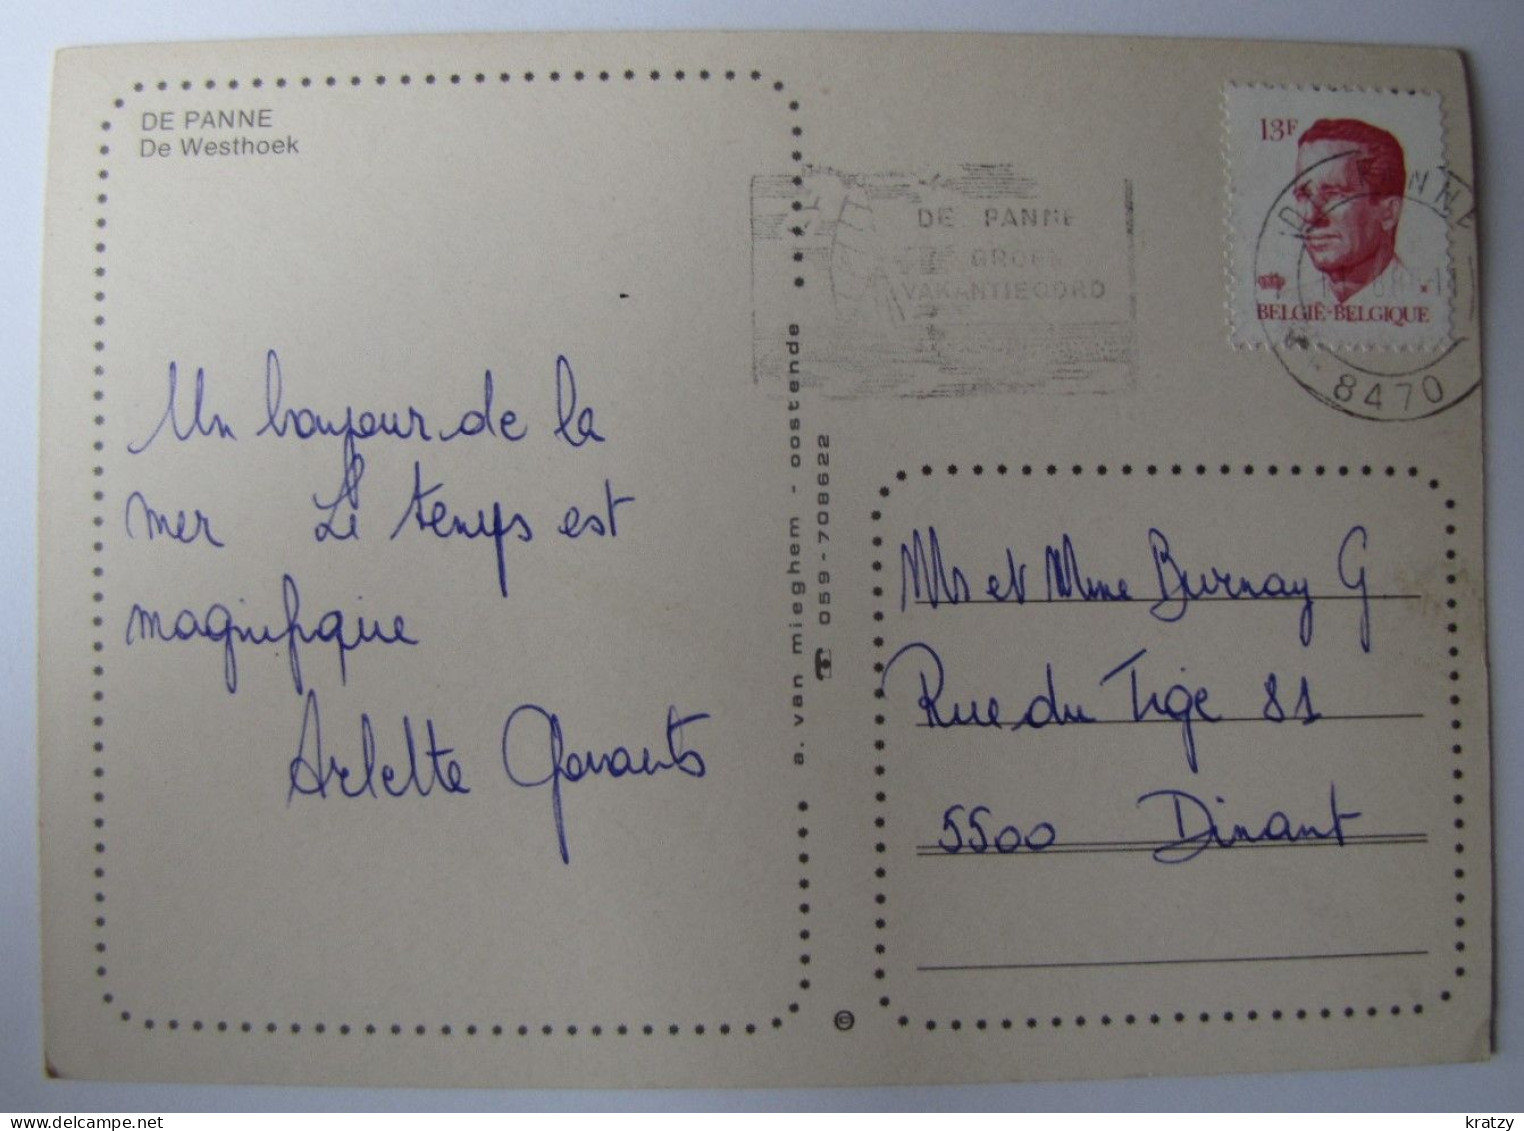 DE PANNE
De Westhoek
Un bonjour de la
mer Le temps est
magnifique
Arlette
a. van mieghem - oostende
059-708622
©
DE PANNE
GROEN
VAKANTIEOORD
13F
BELGIË-BELGIQUE
DE PANNE
8470
Mr et Mme Burnay G
Rue du Tige 81
5500 Dinant
delcampe.net
kratzy